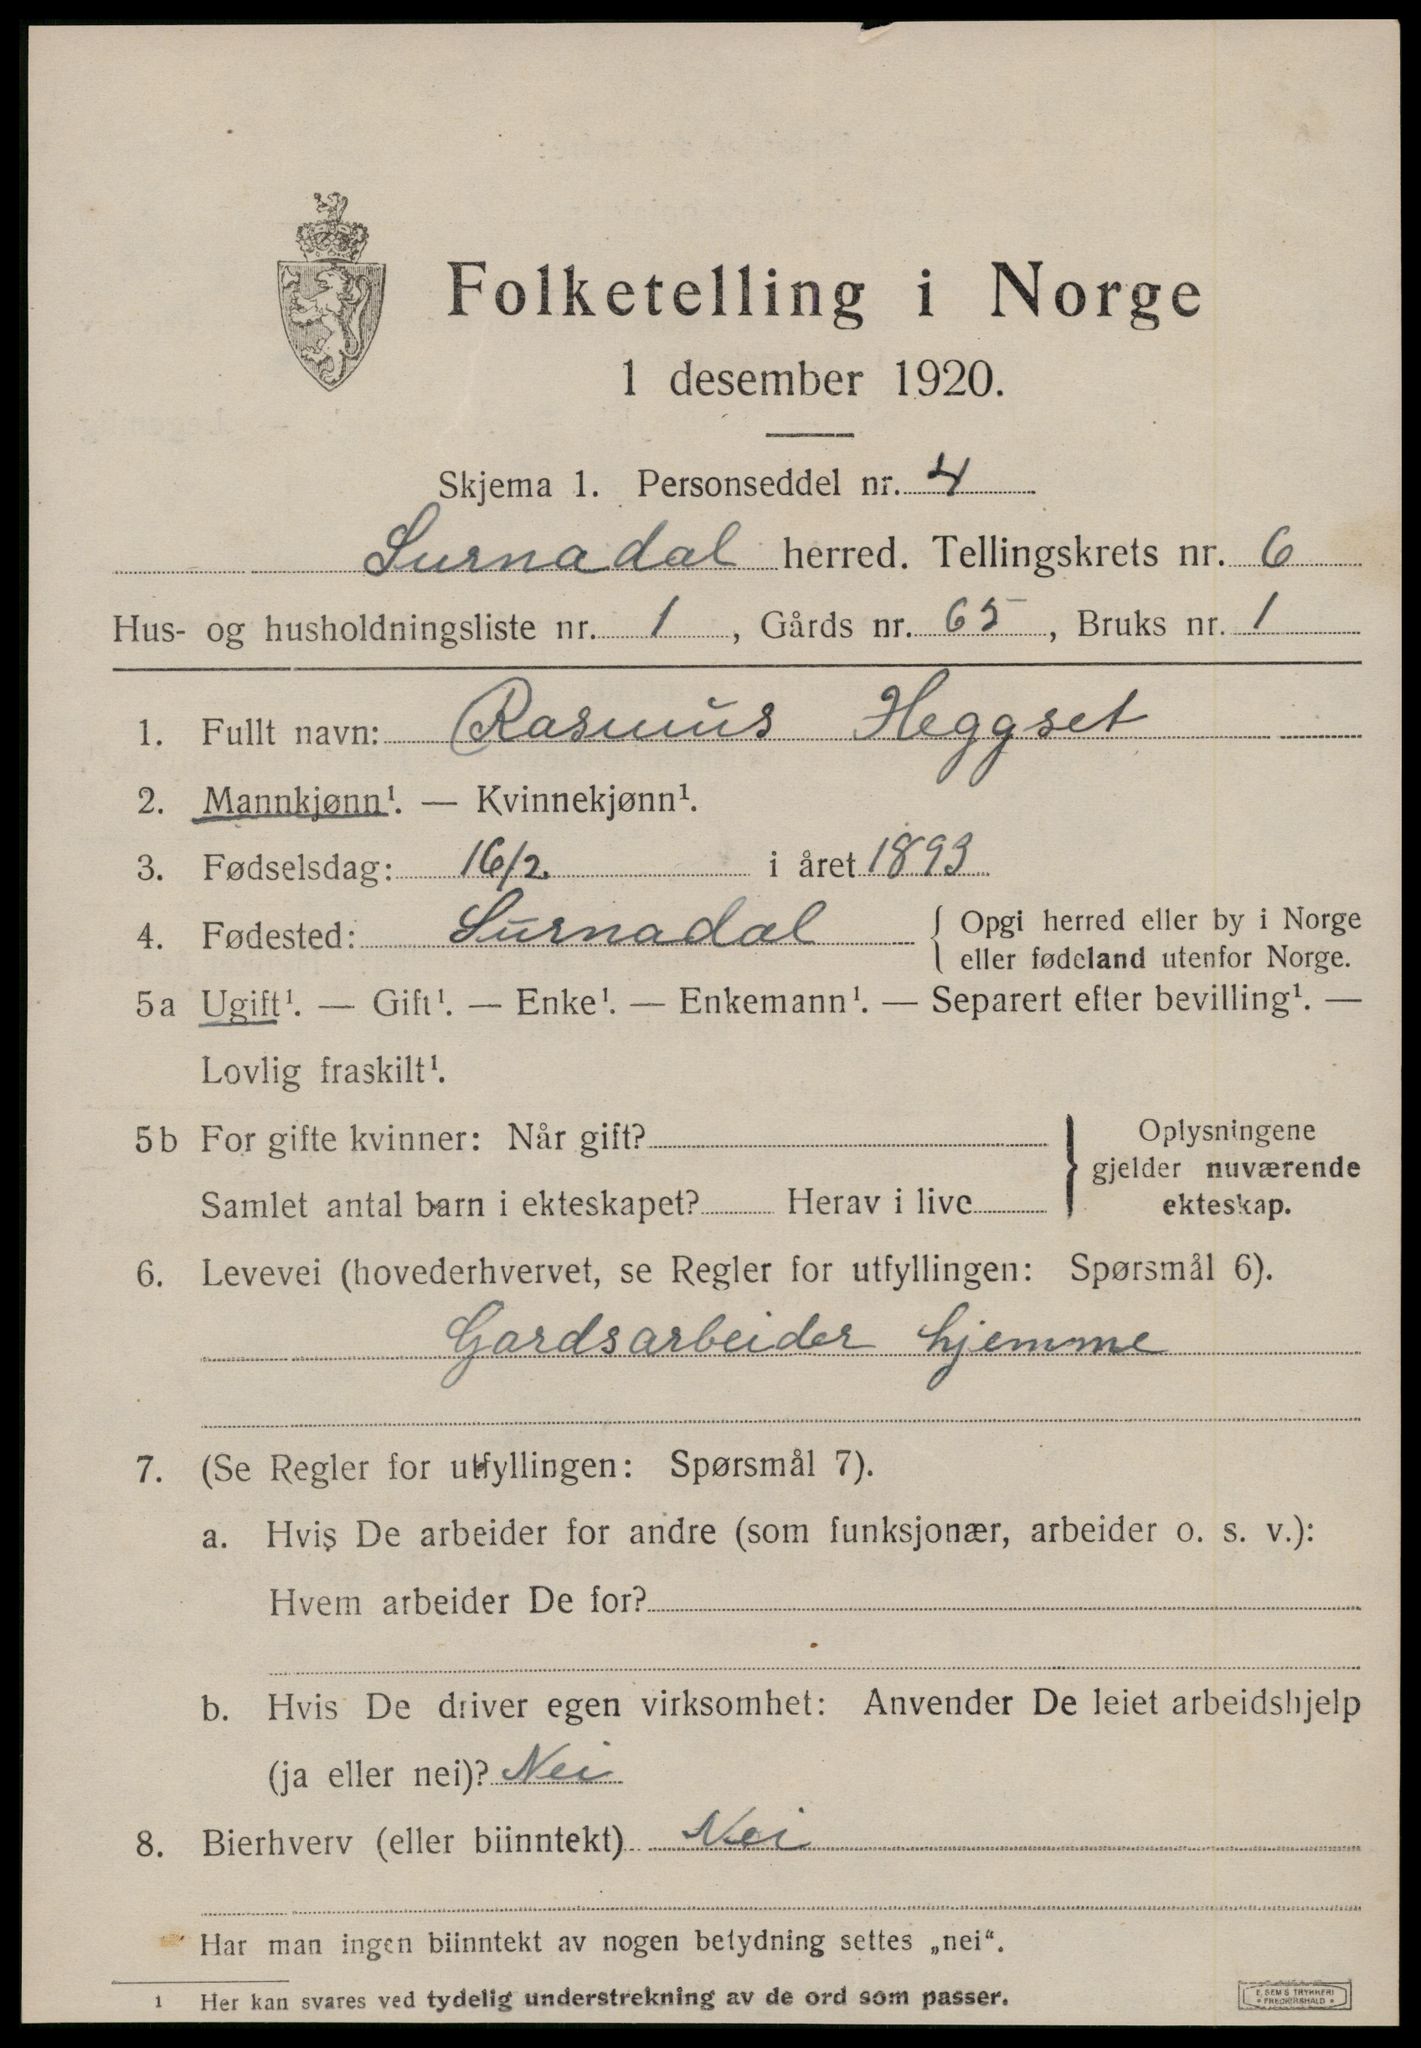 Folketelling i Norge
1 desember 1920.
Skjema 1. Personseddel nr. 4
Surnadal herred. Tellingskrets nr. 6
Hus- og husholdningsliste nr. 1, Gårds nr. 65, Bruks nr. 1
1. Fullt navn: Rasmus Heggset
2. Mannkjønn¹. — Kvinnekjønn¹.
3. Fødselsdag: 16/2. i året 1893
4. Fødested: Surnadal { Opgi herred eller by i Norge
eller fødeland utenfor Norge.
5a Ugift¹. — Gift¹. — Enke¹. — Enkemann¹. — Separert efter bevilling¹. —
Lovlig fraskilt¹.
5b For gifte kvinner: Når gift?
Samlet antal barn i ekteskapet? Herav i live
} Oplysningene
gjelder nuværende
ekteskap.
6. Levevei (hovederhvervet, se Regler for utfyllingen: Spørsmål 6).
Gardsarbeider hjemme
7. (Se Regler for utfyllingen: Spørsmål 7).
a. Hvis De arbeider for andre (som funksjonær, arbeider o. s. v.):
Hvem arbeider De for?
b. Hvis De driver egen virksomhet: Anvender De leiet arbeidshjelp
(ja eller nei)? Nei
8. Bierhverv (eller biinntekt) Nei
Har man ingen biinntekt av nogen betydning settes „nei“.
1 Her kan svares ved tydelig understrekning av de ord som passer.
E. SEMS TRYKKERI
• FREDRIKSHALD •